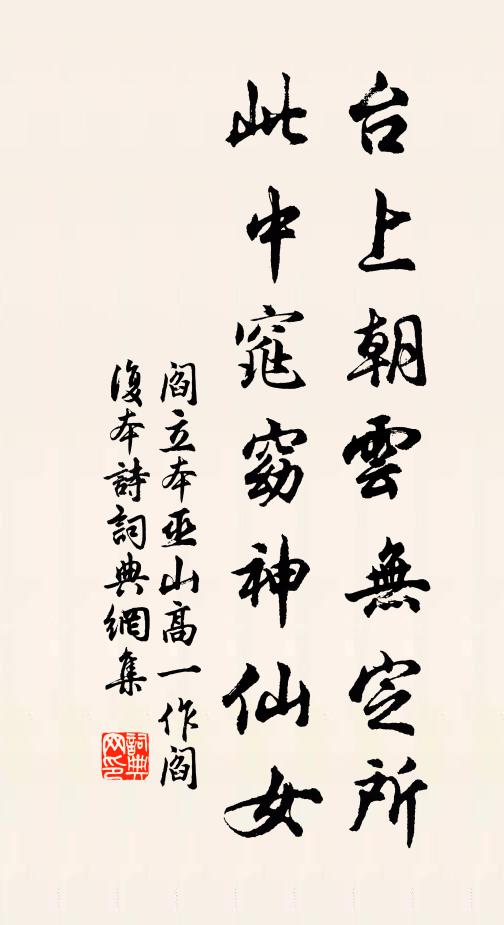 台上朝雲無定所
此中窕窈神仙女
閻立本巫山高一作閻
復本詩詞典網集
詞典网印